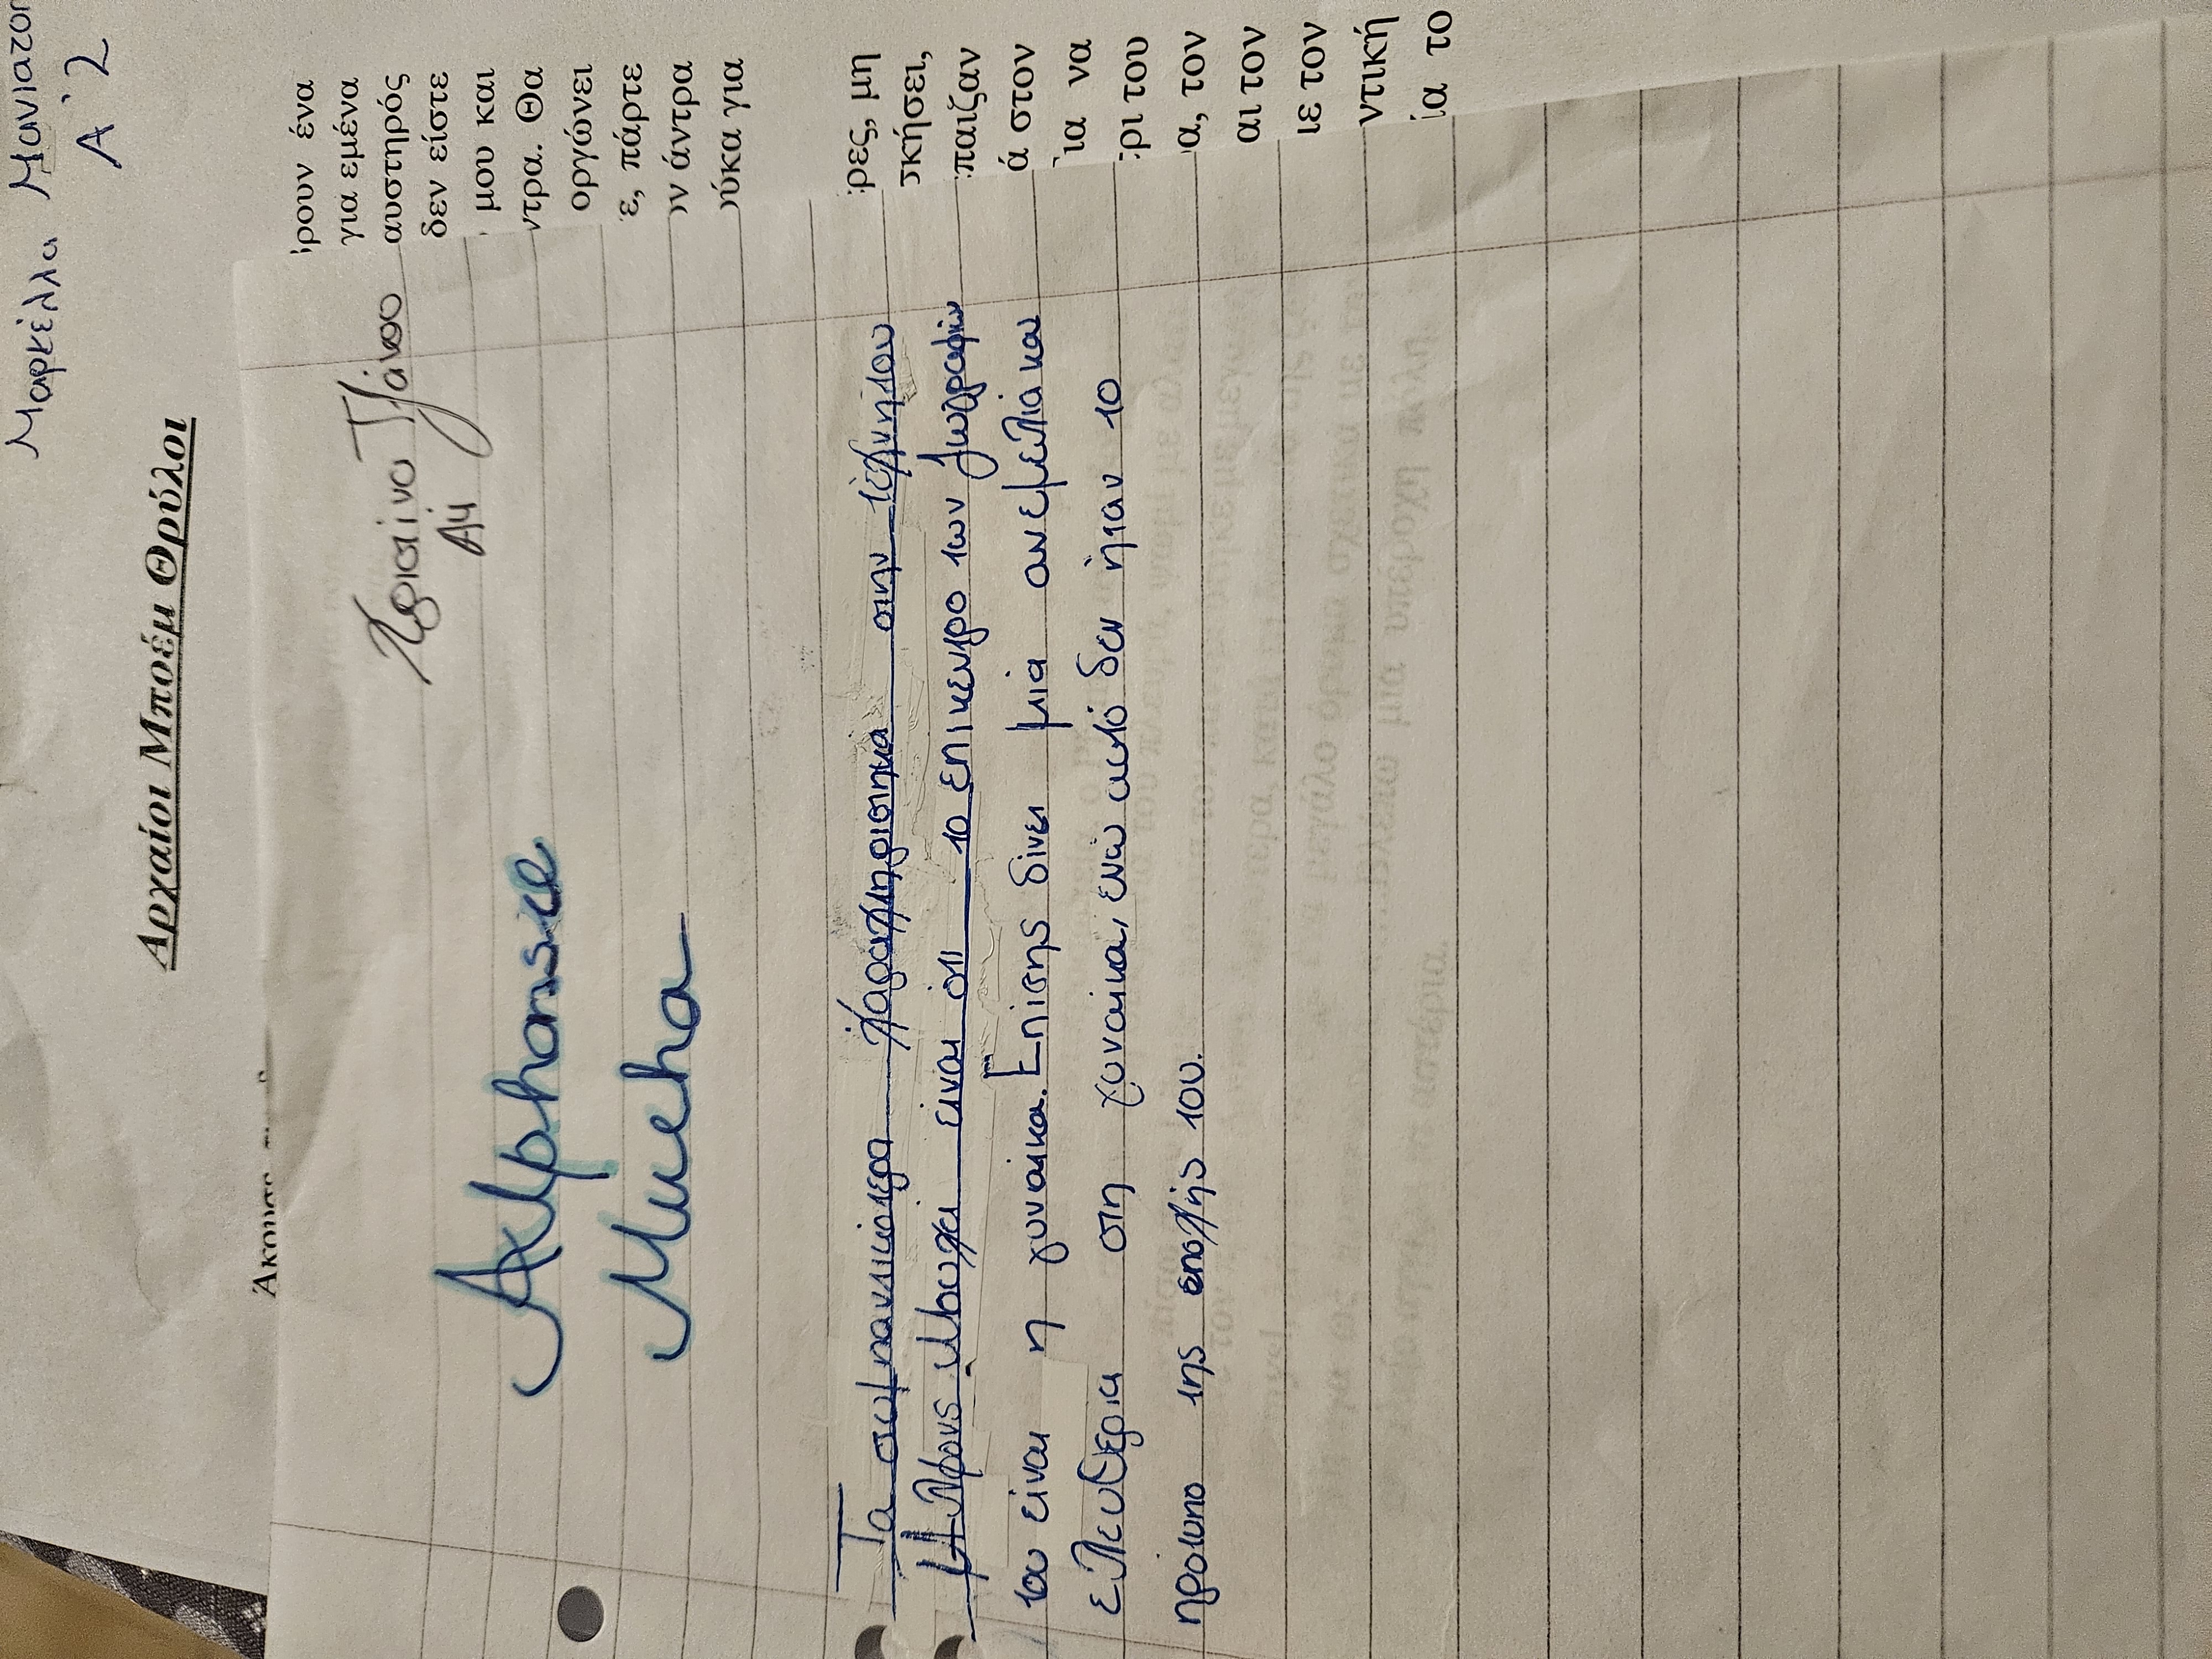 Μαρκέλλα Μανιατο
Α'2
Αρχαίοι Μποέμ Θρύλοι
Άκουσε
ρουν ένα
για εμένα
αυστηρός
δεν είστε
μου και
ντρα. Θα
οργώνει
ε, πάρτε
ον άντρα
ούκα για
ρες, μη
σκήσει,
παιζαν
ά στον
ια να
ρι του
α, τον
αι τον
ιε τον
ντική
ία το
Χρισαίνα Τζάκου
Α4
Alphonse
Mucha
Τα σημαντικότερα χαρακτηριστικα στην τέχνη του
Αλφονς Μουχά είναι ότι το επίκεντρο των ζωγραφιών
του είναι η γυναίκα. Επίσης δίνει μιά ανεμελιά και
ελευθερια στη γυναίκα, ενώ αυτό δεν ήταν το
πρότυπο της εποχής του.